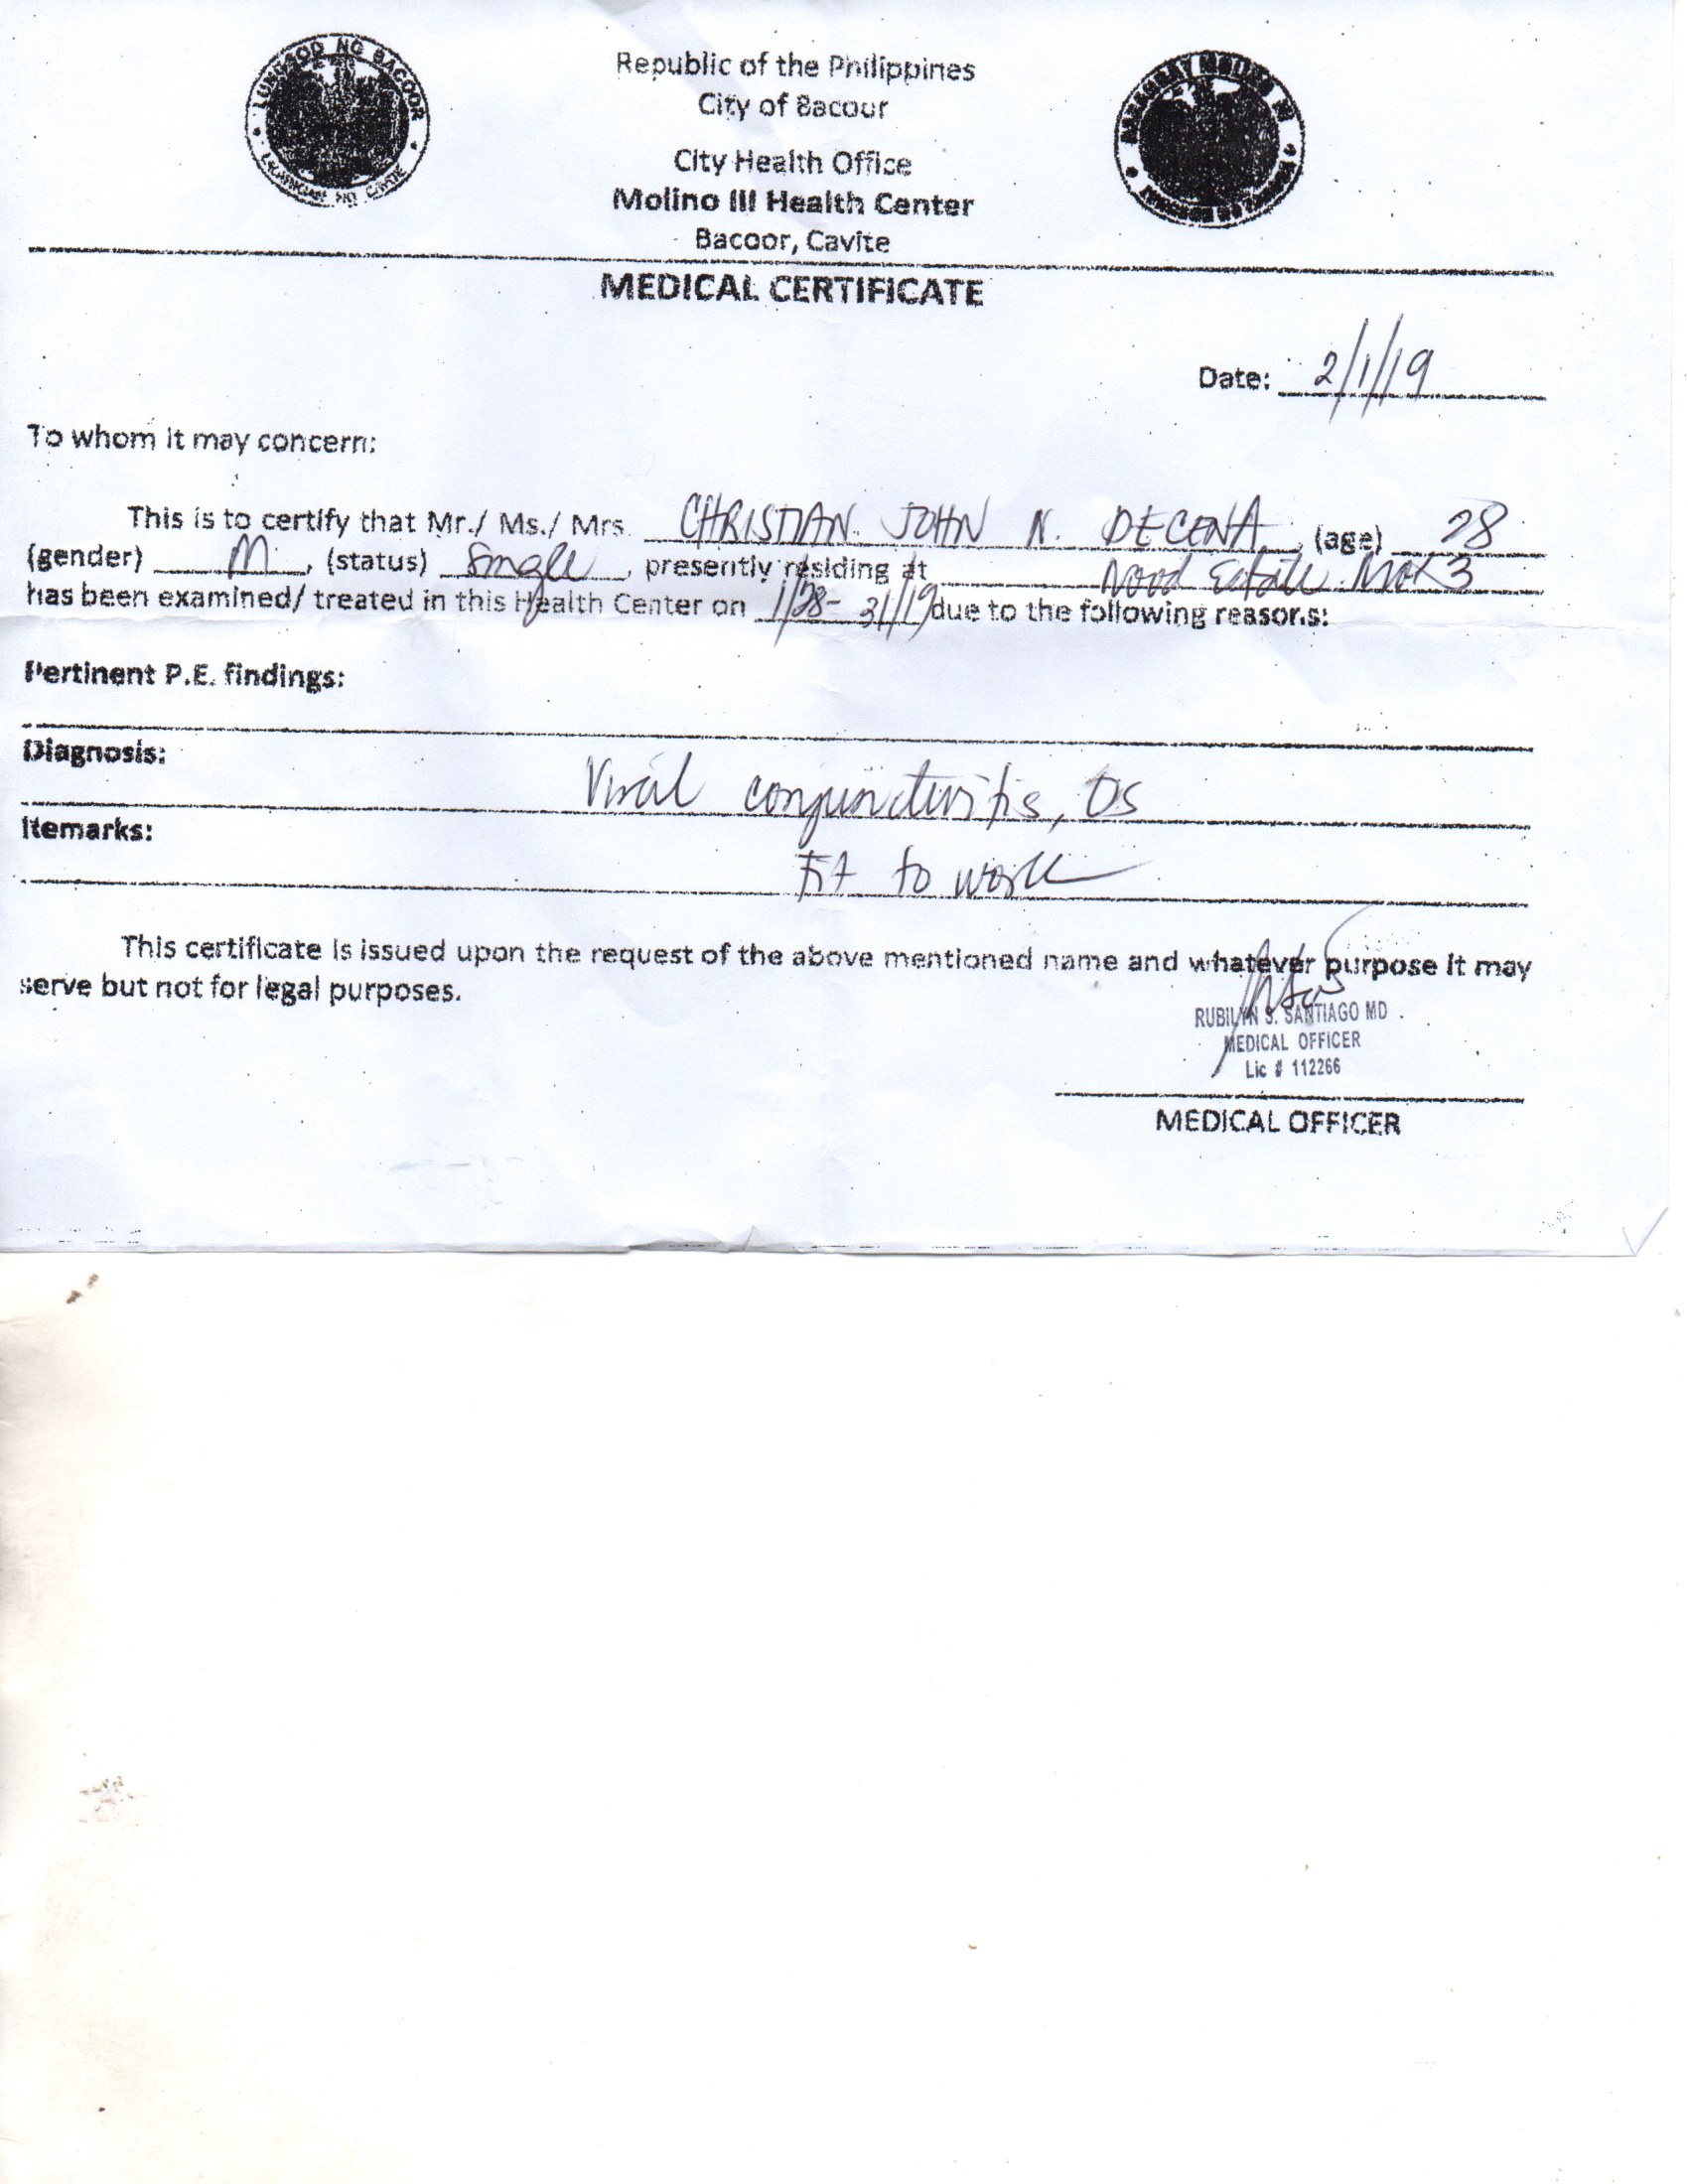 LUNGSOD NG BACOOR
LALAWIGAN NG CAVITE
Republic of the Philippines
City of Bacour
City Health Office
Molino III Health Center
Bacoor, Cavite
MEDICAL CERTIFICATE
Date: 2/1/19
To whom it may concern:
This is to certify that Mr./ Ms./ Mrs. CHRISTIAN JOHN N. DECENA, (age) 28
(gender) M, (status) Single, presently residing at Estate Mol 3
has been examined/ treated in this Health Center on 1/28-31/19 due to the following reasons:
Pertinent P.E. findings:
Diagnosis:
Viral conjunctivitis, OS
Remarks:
Fit to work
This certificate is issued upon the request of the above mentioned name and whatever purpose it may
serve but not for legal purposes.
RUBILYN S. SANTIAGO MD
MEDICAL OFFICER
Lic # 112266
MEDICAL OFFICER